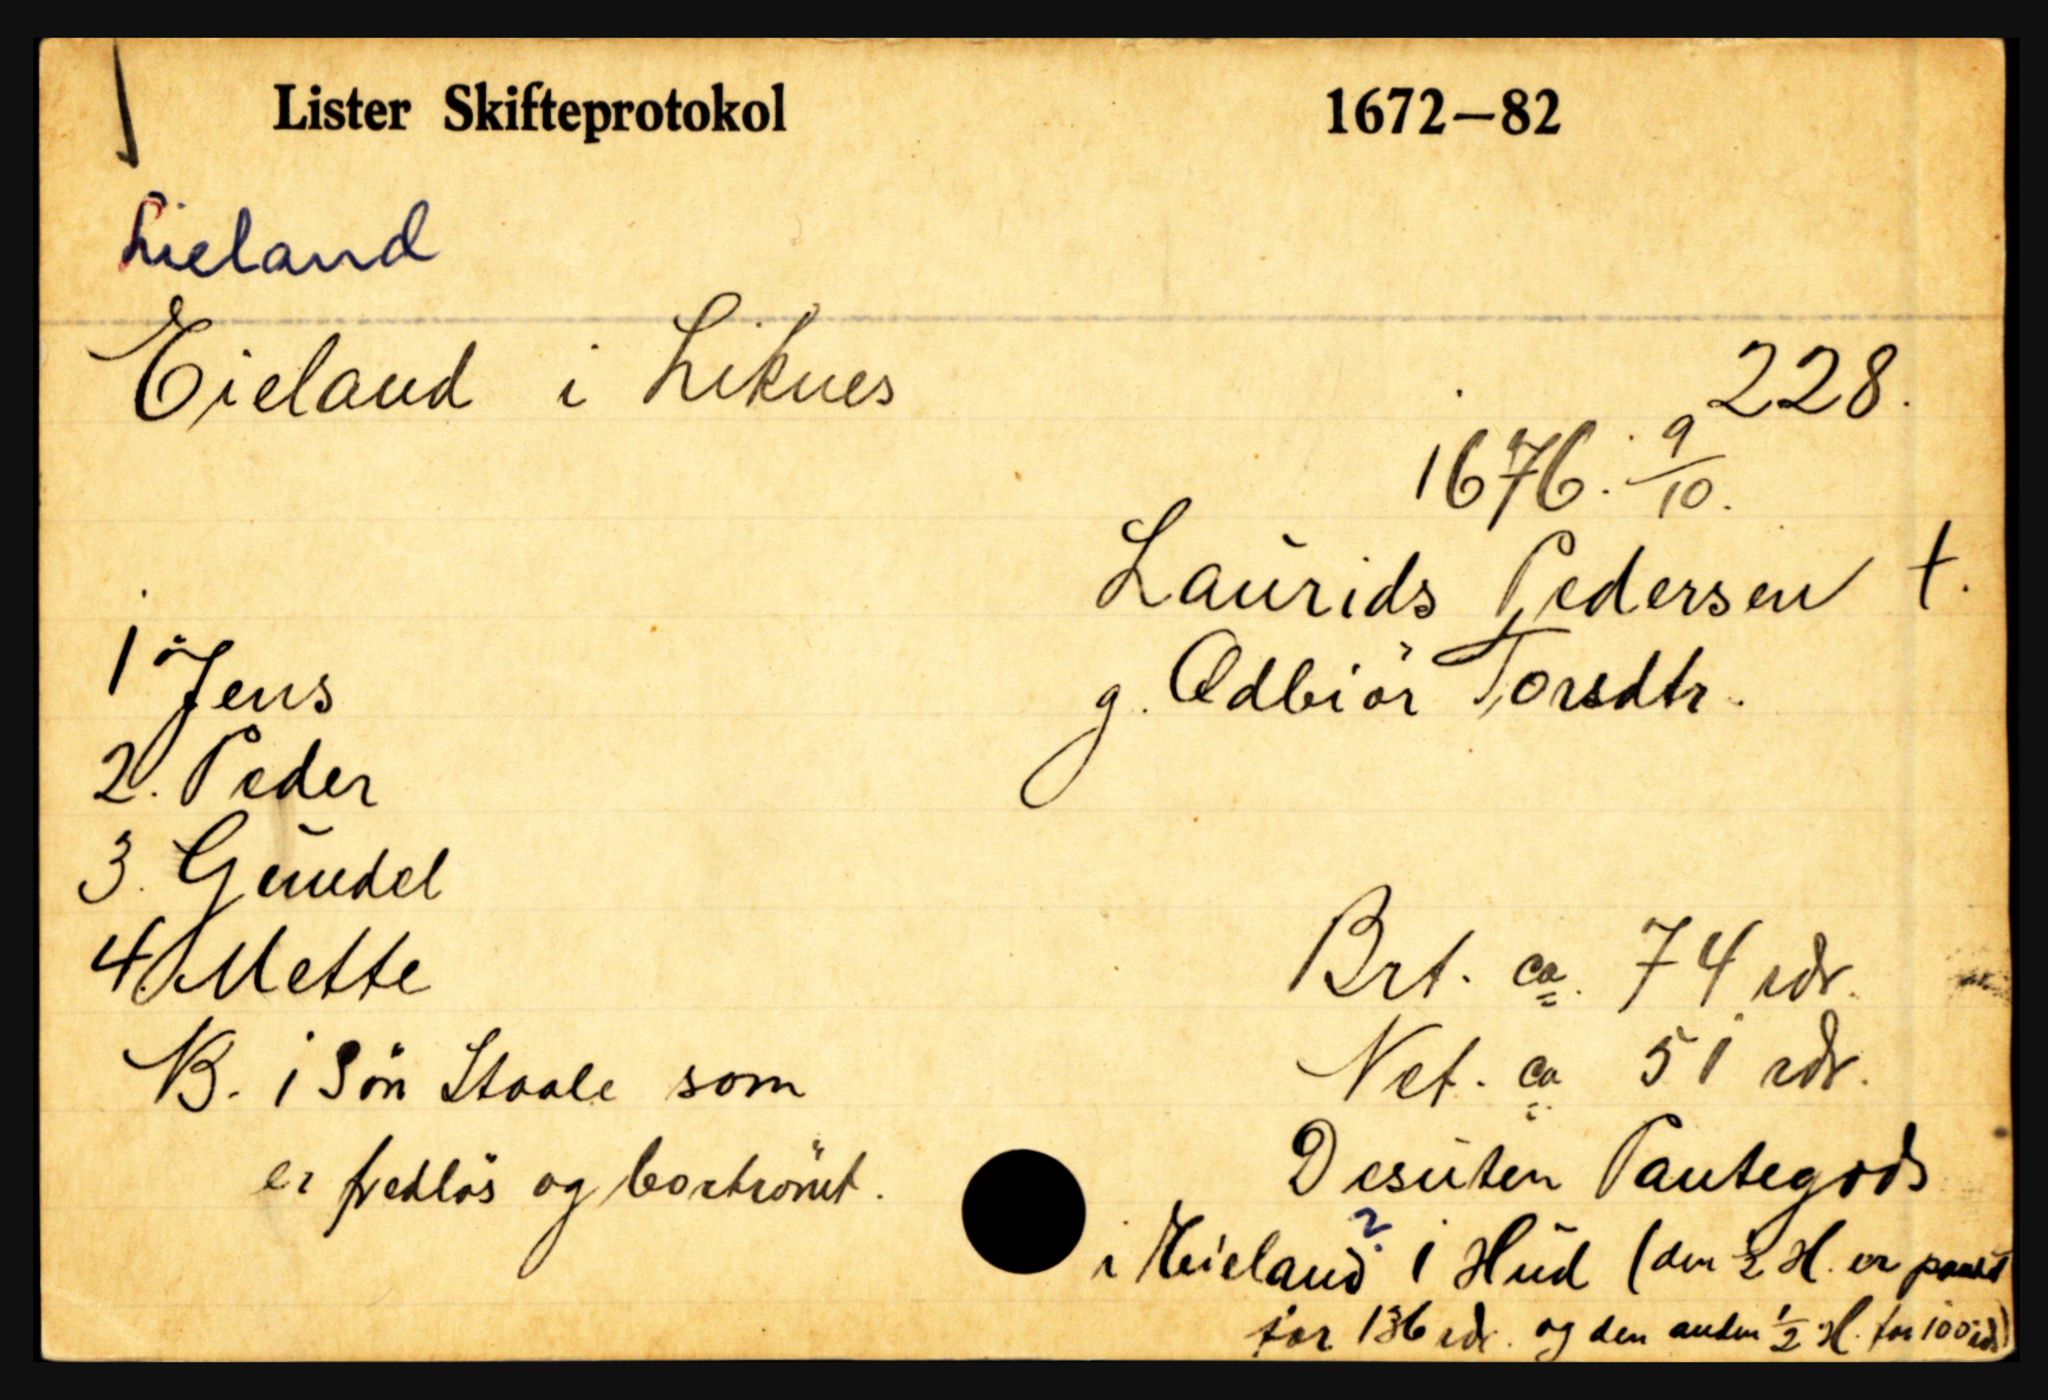 Lister Skifteprotokol 1672—82
Lieland
Eieland i Liknes 228.
1676. 9/10.
Laurids Pedersen †.
g. Adbiör Torsdtr.
1 Jens
2. Peder
3. Gundel
4. Mette
Brt. ca. 74 rdr.
Net. ca 51 rdr.
NB. 1 Sön Staale som
er fredlös og bortrömt.
Desuten Pantegods
i Eieland ? 1 Hud (den ½ H. er pantet
for 136 rdr. og den anden ½ H. for 100 rdr)